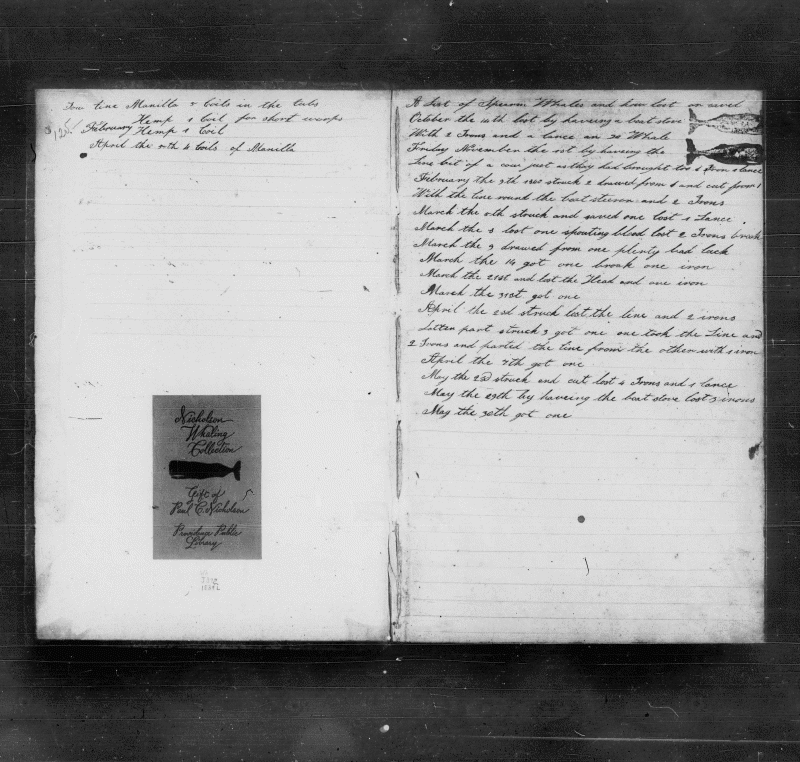 Tow line Manilla & Coils in the tubs
Hemp 1 Coil for short warps
February Hemp 1 Coil
April the 4 Coils of Manilla
Nicholson
Whaling
Collection
Gift of
Paul C. Nicholson
Providence Public
Library
A List of Sperm Whales and how lost or saved
October the 10th lost by haveing a boat stove
With 2 Irons and a lance an 90 Whale
Friday November the 1st by haveing the
Line bit of a cow just as they had brought too 1 Iron 1 lance
February the 9th 1860 struck 2 drawed from 1 and cut from 1
With the line round the boat steerer and 2 Irons
March the struck and saved one lost 1 Lance
March the 3 lost one spouting blood lost 2 Irons broak
March the 9 drawed from one plenty bad luck
March the 14 got one broak one iron
March the 21st and lost the Head and one iron
March the 31st got one
April the 23d struck lost the line and 2 irons
Latter part struck 3 got one one took the Line and
2 Irons and parted the line from the other with 1 iron
April the 7th got one
May the 2d struck and cut lost 4 Irons and 1 lance
May the 29th by haveing the boat stove lost 3 irons
May the 30th got one